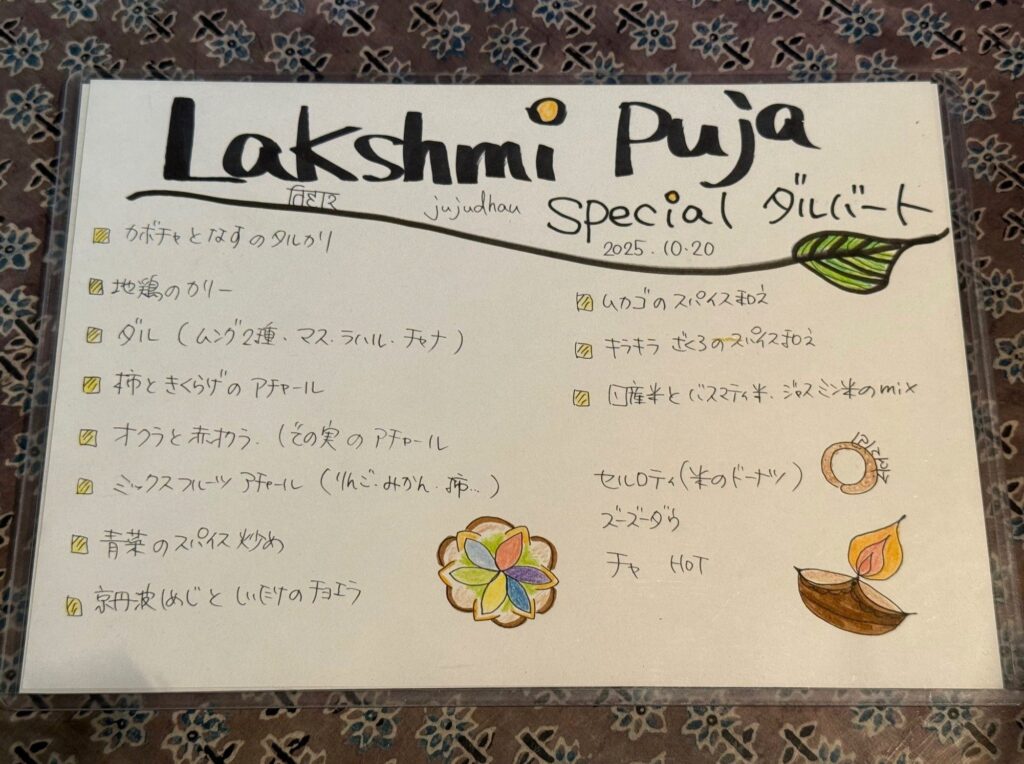 Lakshmi Puja
तिहार
jujudhau
Special ダルバート
2025.10.20
カボチャとなすのタルカリ
地鶏のカリー
ダル (ムング2種・マス・ラハル・チャナ)
柿ときくらげのアチャール
オクラと赤オクラ、しその実のアチャール
ミックスフルーツアチャール (りんご・みかん・柿…)
青菜のスパイス炒め
京丹波しめじとしいたけのチョエラ
ムカゴのスパイス和え
キラキラざくろのスパイス和え
国産米とバスマティ米・ジャスミン米のmix
セルロティ(米のドーナツ)
ズーズーダウ
チャ HOT